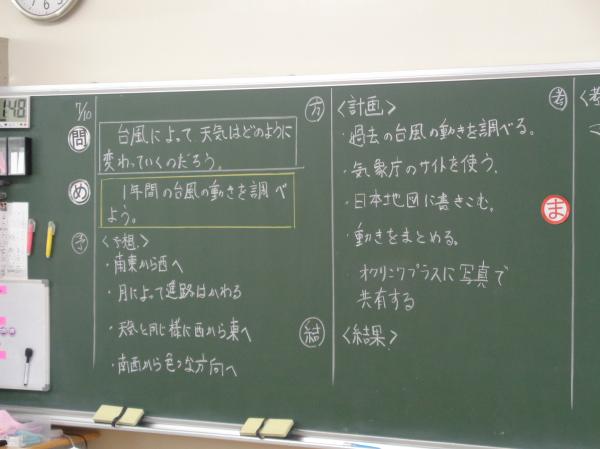 1:48
7/10
問
台風によって天気はどのように
変わっていくのだろう。
め
1年間の台風の動きを調べ
よう。
予
〈予想〉
・南東から西へ
・月によって進路はかわる
・天気と同じ様に西から東へ
・南西から色々な方向へ
方
〈計画〉
・過去の台風の動きを調べる。
・気象庁のサイトを使う.
・日本地図に書きこむ。
・動きをまとめる。
・オクリンクプラスに写真で
共有する
結
〈結果〉
考
ま